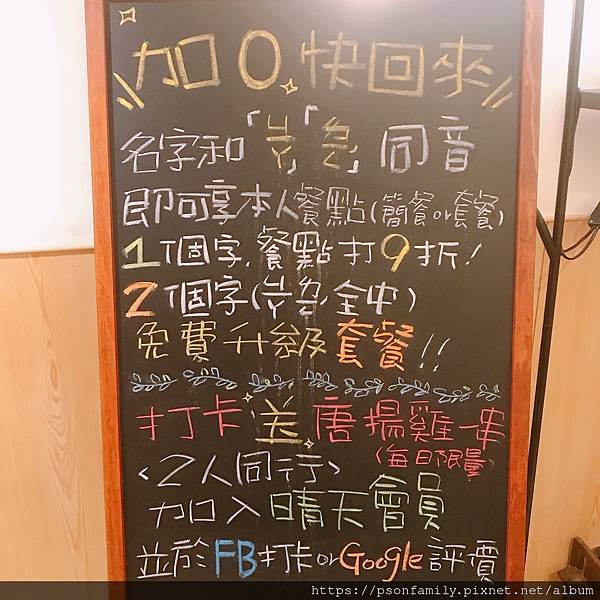 加0快回來
名字和「岢」「刍」同音
即可享本人餐點(簡餐or套餐)
1個字,餐點打9折!
2個字(岢刍全中)
免費升級套餐!!
打卡送唐揚雞一串
(每日限量
<2人同行>
加入晴天會員
並於FB打卡orGoogle評價
https://psonfamily.pixnet.net/album